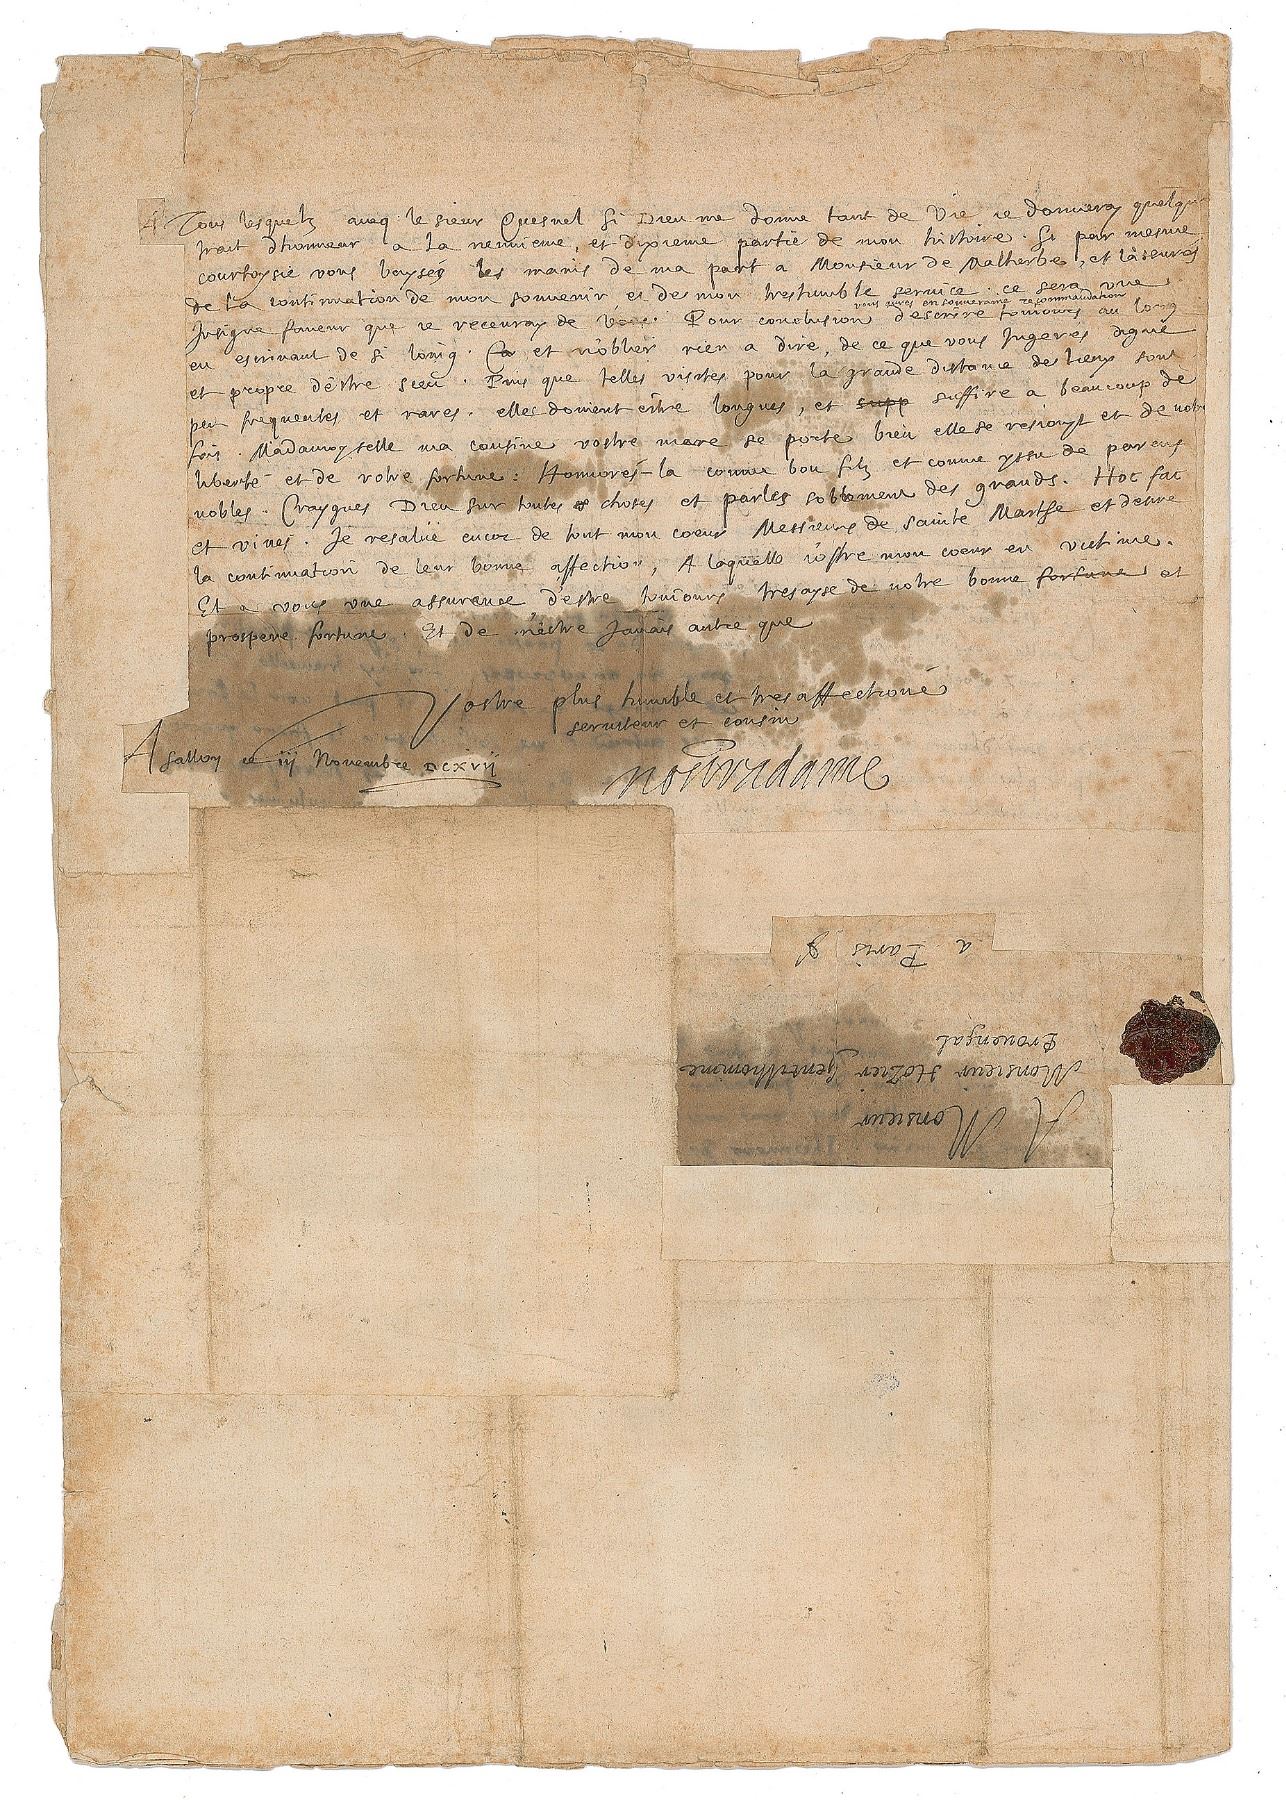 Tous lesquelz aueq le sieur Quesnel Si Dieu me donne tant de Vie ie donneray quelque
trait dhonneur a la neuuieme, et dixieme partie de mon histoire. Si par mesme
courtoysie vous baysés les mains de ma part a Monsieur de Malherbe, et lasseurés
de la continuation de mon souuenir et de mon treshumble seruice. ce sera vne
Insigne faueur que ie receuray de Vous. Pour conclusion
vous aures en souueraine recommandation
descrire tousiours au long
en escriuant de si loing. et n'oblier rien a dire, de ce que vous Jugerés digne
et propre d'estre sceu. Puis que telles visites pour la grande distance de lieux sont
peu frequentes et rares. elles doiuent estre longues, et supp suffire a beaucoup de
fois. Madamoyselle ma cousine vostre mere se porte bien elle se resiouyt et de vostre
liberté et de vostre fortune: Honnorés-la comme bon filz et comme yssu de parens
nobles. Craygnes Dieu sur toutes choses et parles sobrement des grands. Hoc fac
et viues. Je resalüe encor de tout mon coeur Messieurs de Sainte Marthe et desire
la continuation de leur bonne affection, A laquelle i'offre mon coeur en victime.
Et a vous vne assurence d'estre tousiours tresayse de vostre bonne fortune et
prospere fortune. Et de n'estre Jamais autre que
Vostre plus humble et tresaffectioné
seruiteur et cousin
A Sallon ce iij Nouembre DCXVII
Nostradame
a Paris
Prouençal
Monsieur Hozier Gentilhomme
A Monsieur